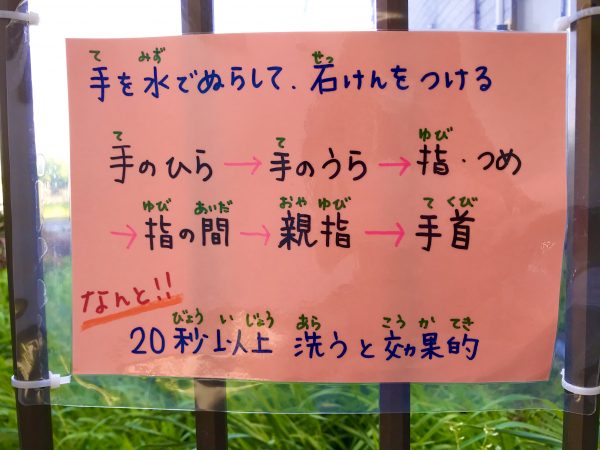 て みず せっ
手を水でぬらして、石けんをつける
て て ゆび
手のひら→手のうら→指・つめ
ゆび あいだ おや ゆび て くび
→指の間→親指→手首
なんと!!
びょう い じょう あら こう か てき
20秒以上 洗うと効果的